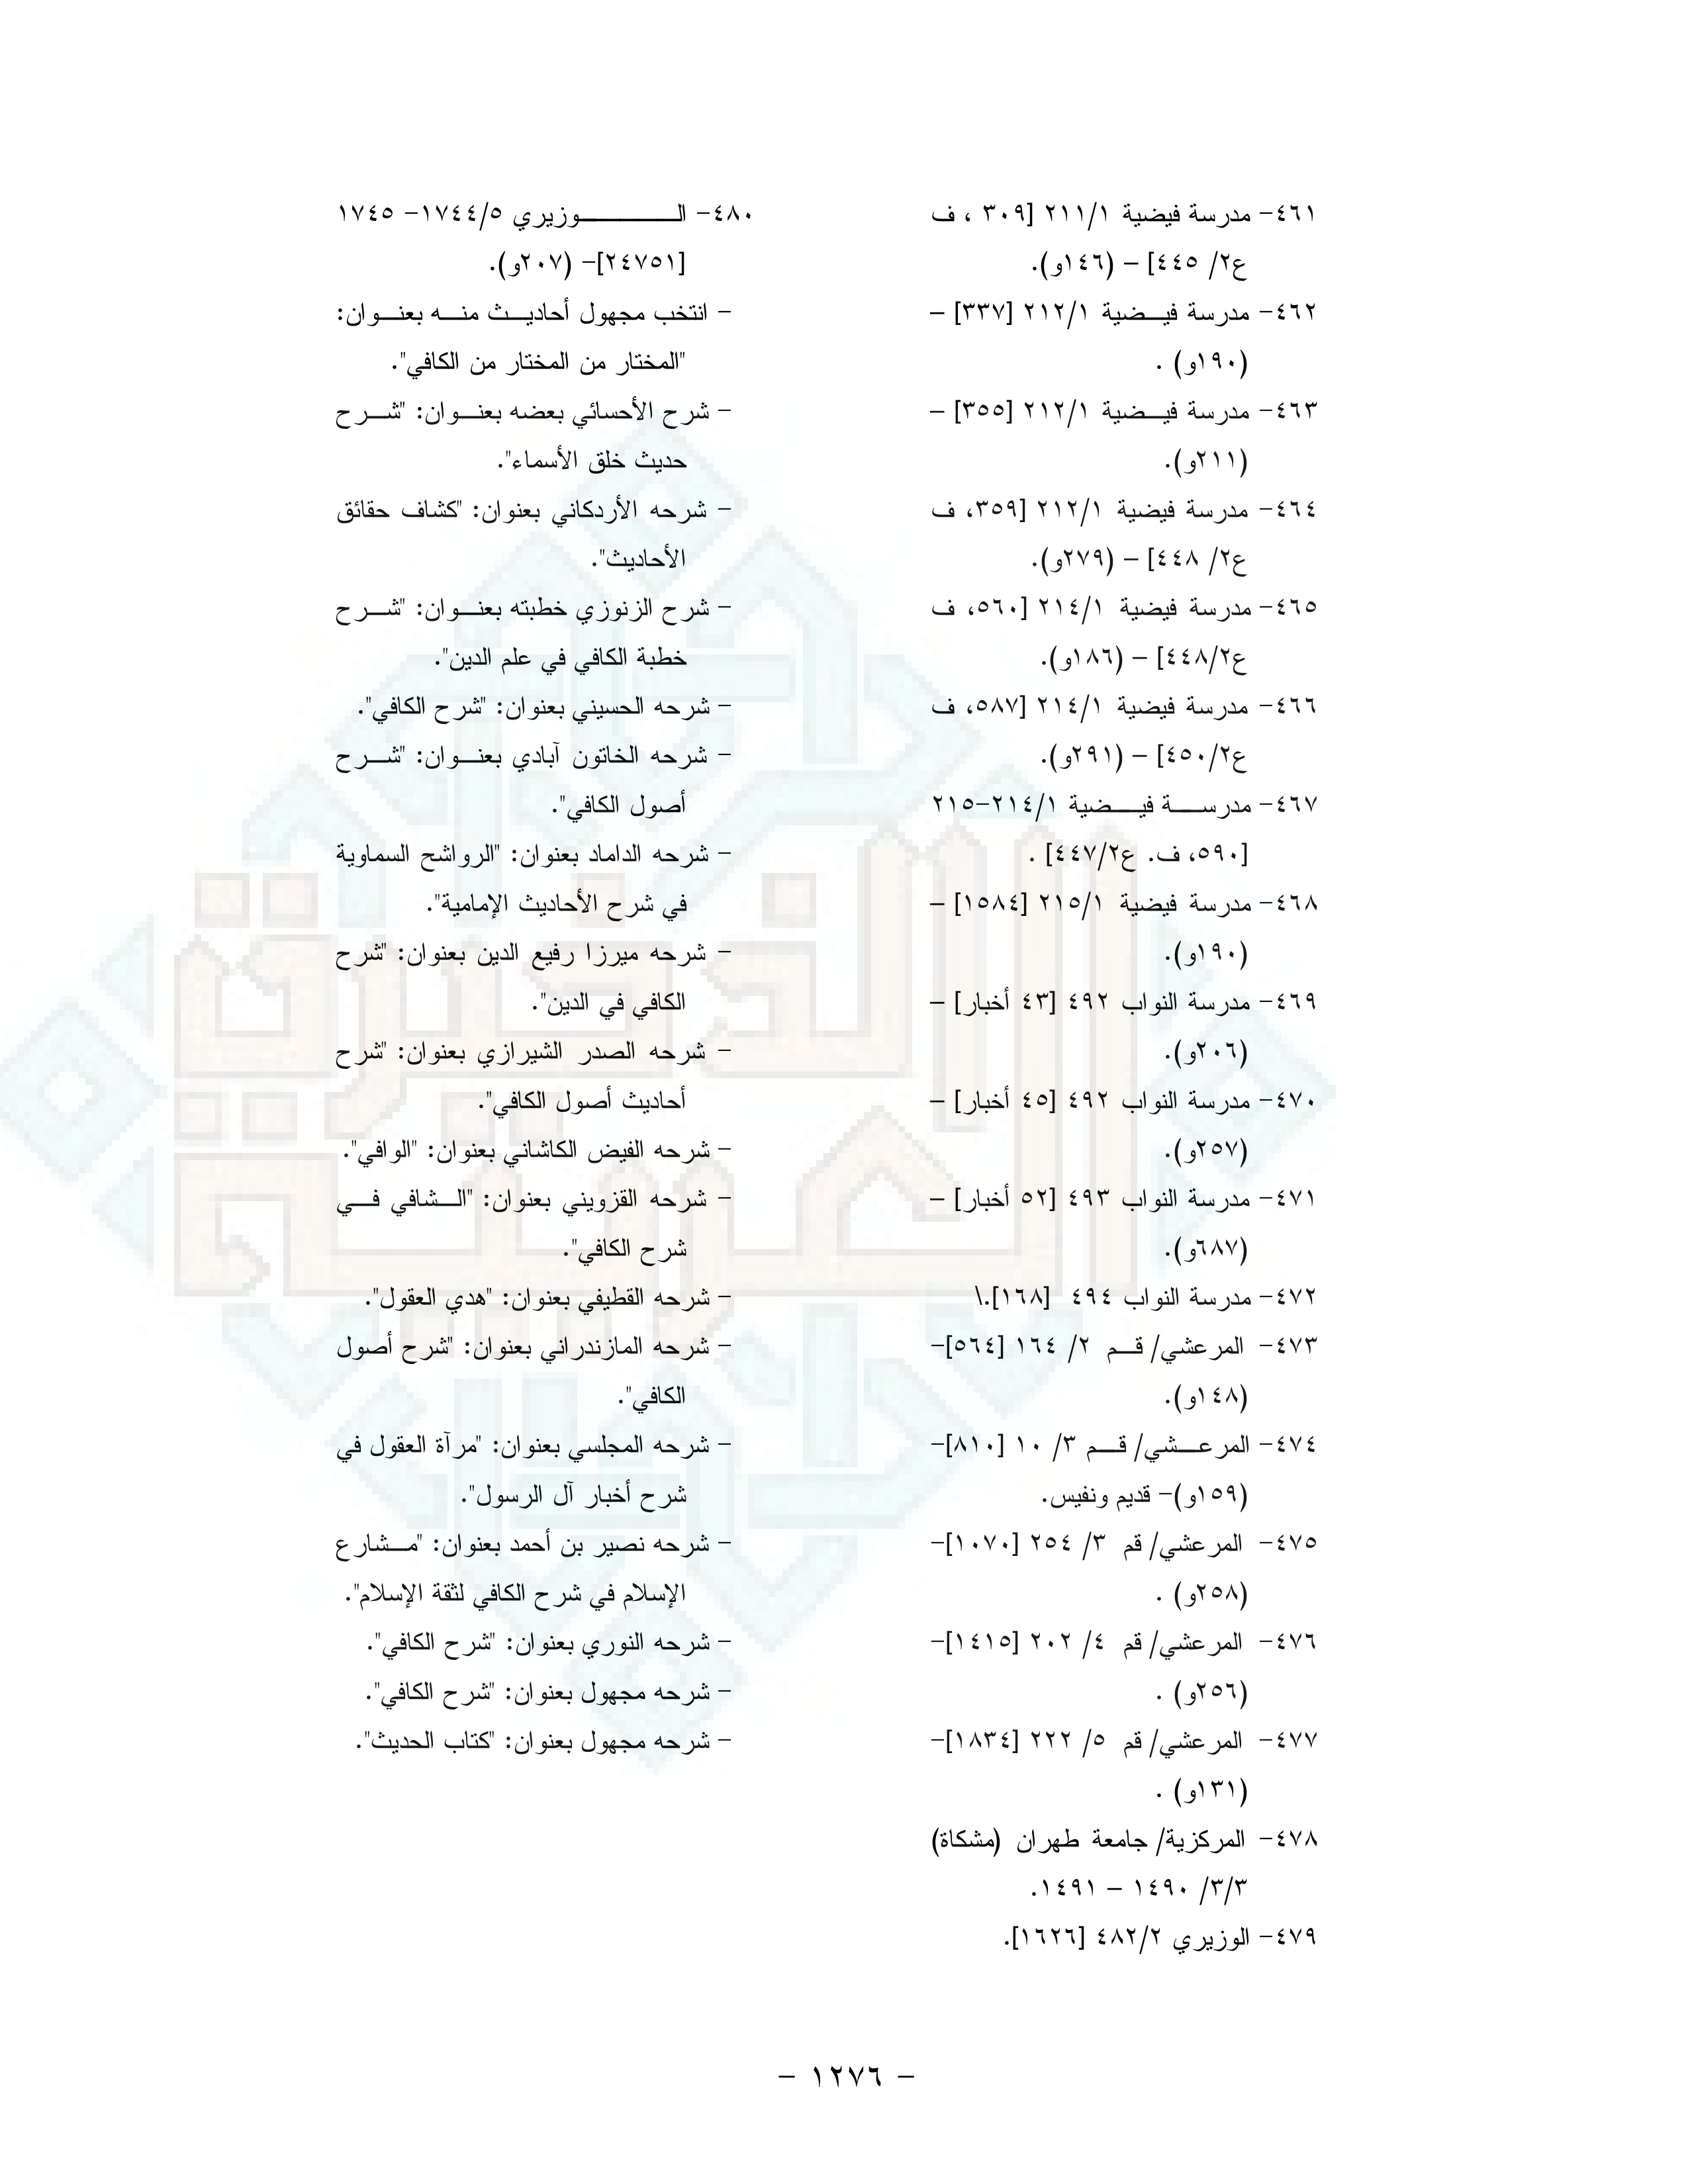 ٤٦١- مدرسة فيضية ٢١١/١ [٣٠٩ ، ف
ع٢/ ٤٤٥] – (١٤٦و).
٤٦٢- مدرسة فيضية ٢١٢/١ [٣٣٧] –
(١٩٠و) .
٤٦٣- مدرسة فيضية ٢١٢/١ [٣٥٥] –
(٢١١و).
٤٦٤- مدرسة فيضية ٢١٢/١ [٣٥٩، ف
ع٢/ ٤٤٨] – (٢٧٩و).
٤٦٥- مدرسة فيضية ٢١٤/١ [٥٦٠، ف
ع٤٤٨/٢] – (١٨٦و).
٤٦٦- مدرسة فيضية ٢١٤/١ [٥٨٧، ف
ع٤٥٠/٢] – (٢٩١و).
٤٦٧- مدرسة فيضية ٢١٤/١-٢١٥
[٥٩٠، ف. ع٤٤٧/٢] .
٤٦٨- مدرسة فيضية ٢١٥/١ [١٥٨٤] –
(١٩٠و).
٤٦٩- مدرسة النواب ٤٩٢ [٤٣ أخبار] –
(٢٠٦و).
٤٧٠- مدرسة النواب ٤٩٢ [٤٥ أخبار] –
(٢٥٧و).
٤٧١- مدرسة النواب ٤٩٣ [٥٢ أخبار] –
(٦٨٧و).
٤٧٢- مدرسة النواب ٤٩٤ [١٦٨].\
٤٧٣- المرعشي/ قم ٢/ ١٦٤ [٥٦٤]-
(١٤٨و).
٤٧٤- المرعشي/ قم ٣/ ١٠ [٨١٠]-
(١٥٩و)- قديم ونفيس.
٤٧٥- المرعشي/ قم ٣/ ٢٥٤ [١٠٧٠]-
(٢٥٨و) .
٤٧٦- المرعشي/ قم ٤/ ٢٠٢ [١٤١٥]-
(٢٥٦و) .
٤٧٧- المرعشي/ قم ٥/ ٢٢٢ [١٨٣٤]-
(١٣١و) .
٤٧٨- المركزية/ جامعة طهران (مشكاة)
٣/٣/ ١٤٩٠ – ١٤٩١.
٤٧٩- الوزيري ٤٨٢/٢ [١٦٢٦].
٤٨٠- الوزيري ١٧٤٤/٥- ١٧٤٥
[٢٤٧٥١]- (٢٠٧و).
- انتخب مجهول أحاديث منه بعنوان:
"المختار من المختار من الكافي".
- شرح الأحسائي بعضه بعنوان: "شرح
حديث خلق الأسماء".
- شرحه الأردكاني بعنوان: "كشاف حقائق
الأحاديث".
- شرح الزنوزي خطبته بعنوان: "شرح
خطبة الكافي في علم الدين".
- شرحه الحسيني بعنوان: "شرح الكافي".
- شرحه الخاتون آبادي بعنوان: "شرح
أصول الكافي".
- شرحه الداماد بعنوان: "الرواشح السماوية
في شرح الأحاديث الإمامية".
- شرحه ميرزا رفيع الدين بعنوان: "شرح
الكافي في الدين".
- شرحه الصدر الشيرازي بعنوان: "شرح
أحاديث أصول الكافي".
- شرحه الفيض الكاشاني بعنوان: "الوافي".
- شرحه القزويني بعنوان: "الشافي في
شرح الكافي".
- شرحه القطيفي بعنوان: "هدي العقول".
- شرحه المازندراني بعنوان: "شرح أصول
الكافي".
- شرحه المجلسي بعنوان: "مرآة العقول في
شرح أخبار آل الرسول".
- شرحه نصير بن أحمد بعنوان: "مشارع
الإسلام في شرح الكافي لثقة الإسلام".
- شرحه النوري بعنوان: "شرح الكافي".
- شرحه مجهول بعنوان: "شرح الكافي".
- شرحه مجهول بعنوان: "كتاب الحديث".
- ١٢٧٦ -